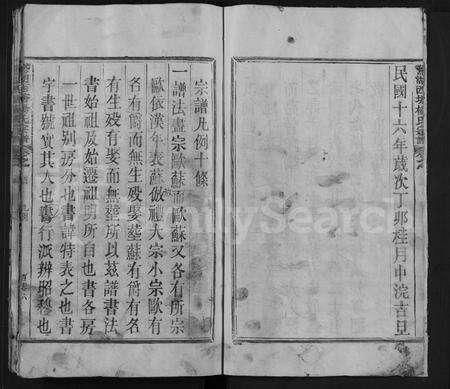 民國十六年歲次丁卯桂月中浣吉旦
宗譜凡例十條
一譜法畫宗歐蘇而歐蘇又各有所宗
歐依漢年表蘇倣禮大宗小宗歐有
名有爵而無生歿娶葬蘇有爵有名
有生歿有娶而無葬所以茲譜書法
書始祖及始遷祖明所自也書各房
一世祖別房分也書譜特表之也書
字書號實其人也書行派辨昭穆也
FamilySearch